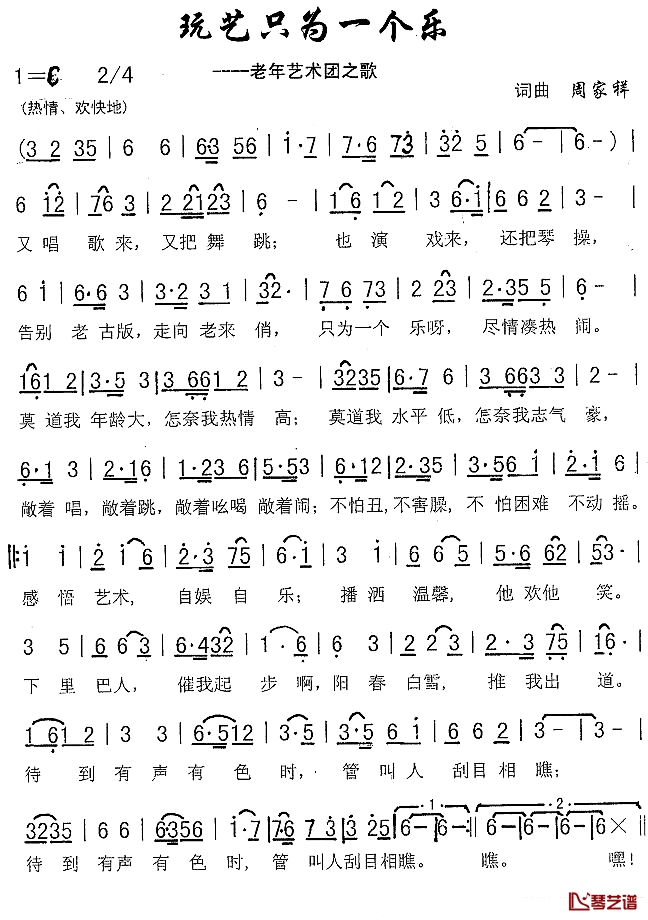 玩艺只为一个乐
1=C 2/4 ----老年艺术团之歌
(热情、欢快地) 词曲 周家祥
(3 2 35 | 6 6 | 63 56 | 1·7 | 7·6 73 | 32 5 | 6- | 6-) |
6 12 | 76 3 | 2 2123 | 6- | 16 12 | 3 6·1 | 6 62 | 3- |
又唱歌来,又把舞跳; 也演戏来,还把琴操,
6 1 | 6·6 3 | 3·2 3 1 | 32· | 7 6 73 | 2 23 | 2·35 5 | 6- |
告别老古版,走向老来俏, 只为一个乐呀, 尽情凑热闹。
161 2 | 3·5 3 | 3 661 2 | 3- | 3235 | 6·7 6 | 3 663 | 2- |
莫道我年龄大,怎奈我热情高; 莫道我水平低,怎奈我志气豪,
6·1 3 | 2·16 | 1·23 6 | 5·53 | 6·12 | 3·3 | 3·56 1 | 2·1 6 |
敞着唱,敞着跳,敞着吆喝敞着闹;不怕丑,不害臊,不怕困难不动摇。
|:1 1 | 2 1 6 | 2·3 75 | 6·1 | 3 3 | 6 6 5 | 5·6 62 | 53· |
感悟艺术, 自娱自乐; 播洒温馨, 他欢他笑。
3 5 | 6 6 3 | 6·432 | 1·6 | 6 3 | 2 2 3 | 2·3 75 | 16· |
下里巴人, 催我起步啊,阳春白雪, 推我出道。
1 61 2 | 3 3 | 6·512 | 3- | 3·5 | 3·5 6 1 | 6 6 2 | 3- | 3- |
待到有声有色时,管叫人刮目相瞧;
3235 | 6 6 | 6356 | 1·2 | 1 | 76 7 3 | 3 25 | 1. 6- | 6- :| 2. 6- | 6- | 6- | 6× ‖
待到有声有色时,管叫人刮目相瞧。 瞧。 嘿!
琴艺谱